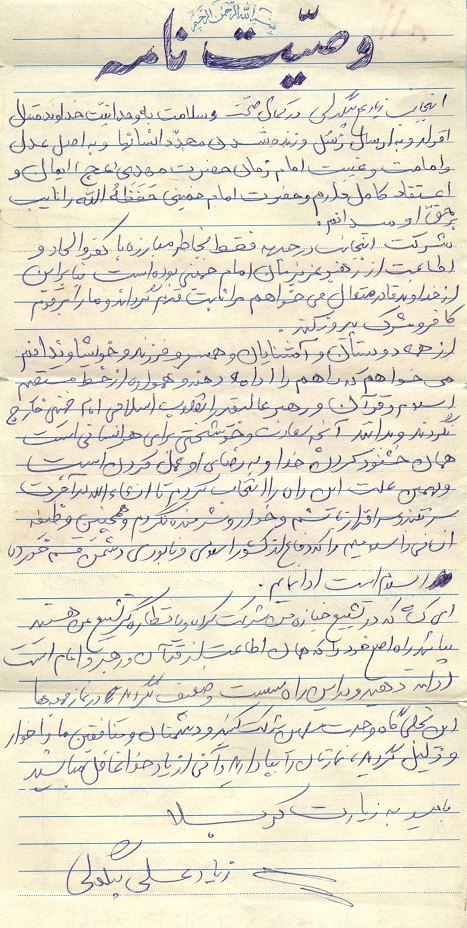 بسم الله الرحمن الرحیم
وصیت نامه
اینجانب زیادعلی بیگدلی در کمال صحت و سلامت به وحدانیت خداوند متعال
اقرار و به ارسال رُسُل و زنده شدن مجدد انسانها و به اصل عدل
و امامت و غیبت امام زمان حضرت مهدی عج ایمان و
اعتقاد کامل دارم و حضرت امام خمینی حفظهُ الله را نایب
بر حق او میدانم.
شرکت اینجانب در جبهه فقط بخاطر مبارزه با کفر و الحاد و
اطاعت از رهبر عزیزمان امام خمینی بوده است بنابراین
از خداوند قادر متعال می خواهم مرا ثابت قدم گرداند و ما را بر قوم
کافر و مشرک پیروز کند.
از همه دوستان و آشنایان و همسر و فرزند و خویشاوندانم
می خواهم که راهم را ادامه دهند و همواره از خط مستقیم
اسلام و قرآن و رهبر عالیقدر انقلاب اسلامی امام خمینی خارج
نگردند و بدانند آنچه سعادت و خوشبختی برای هر انسانی است
همان خشنود کردن خدا و به رضای او عمل کردن است
و بهمین علت این راه را انتخاب کردم تا انشاءالله در آخرت
سرافکنده نباشم و خوار و شرمنده نگردم و همچنین وظیفه
انسانی و اسلامیم را که دفاع از کشور اسلامی و نابودی دشمن قسم خورده
اسلام است ادا نمایم.
ای کسانی که در تشییع جنازه من شرکت کرده و یا نظاره گر تشییع من هستید
بیائید راه اصلی خود را که همان اطاعت از قرآن و رهبر و امام است
ادامه دهید و در این راه سست و ضعیف نگردید در نماز جمعه ها
این تجلی گاه وحدت مسلمین شرکت کنید و دشمنان و منافقین ما را خوار
و ذلیل گردانید، نمازتان را بپا دارید و آنی از یاد خدا غافل مباشید
بامید به زیارت کربلا
زیادعلی بیگدلی